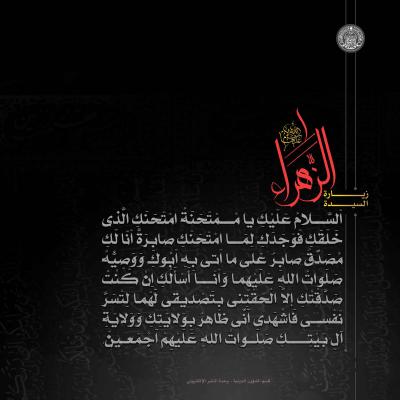 زيارة
السيدة
الزهراء
السلام عليك يا ممتحنة امتحنك الذي
خلقك فوجدك لما امتحنك صابرة أنا لك
مصدق صابر على ما أتى به أبوك ووصيه
صلوات الله عليهما وأنا أسألك إن كنت
صدقتك إلا ألحقتني بتصديقي لهما لتسر
نفسي فاشهدي أني ظاهر بولايتك وولاية
آل بيتك صلوات الله عليهم أجمعين
قسم الشؤون الدينية - وحدة النشر الإلكتروني